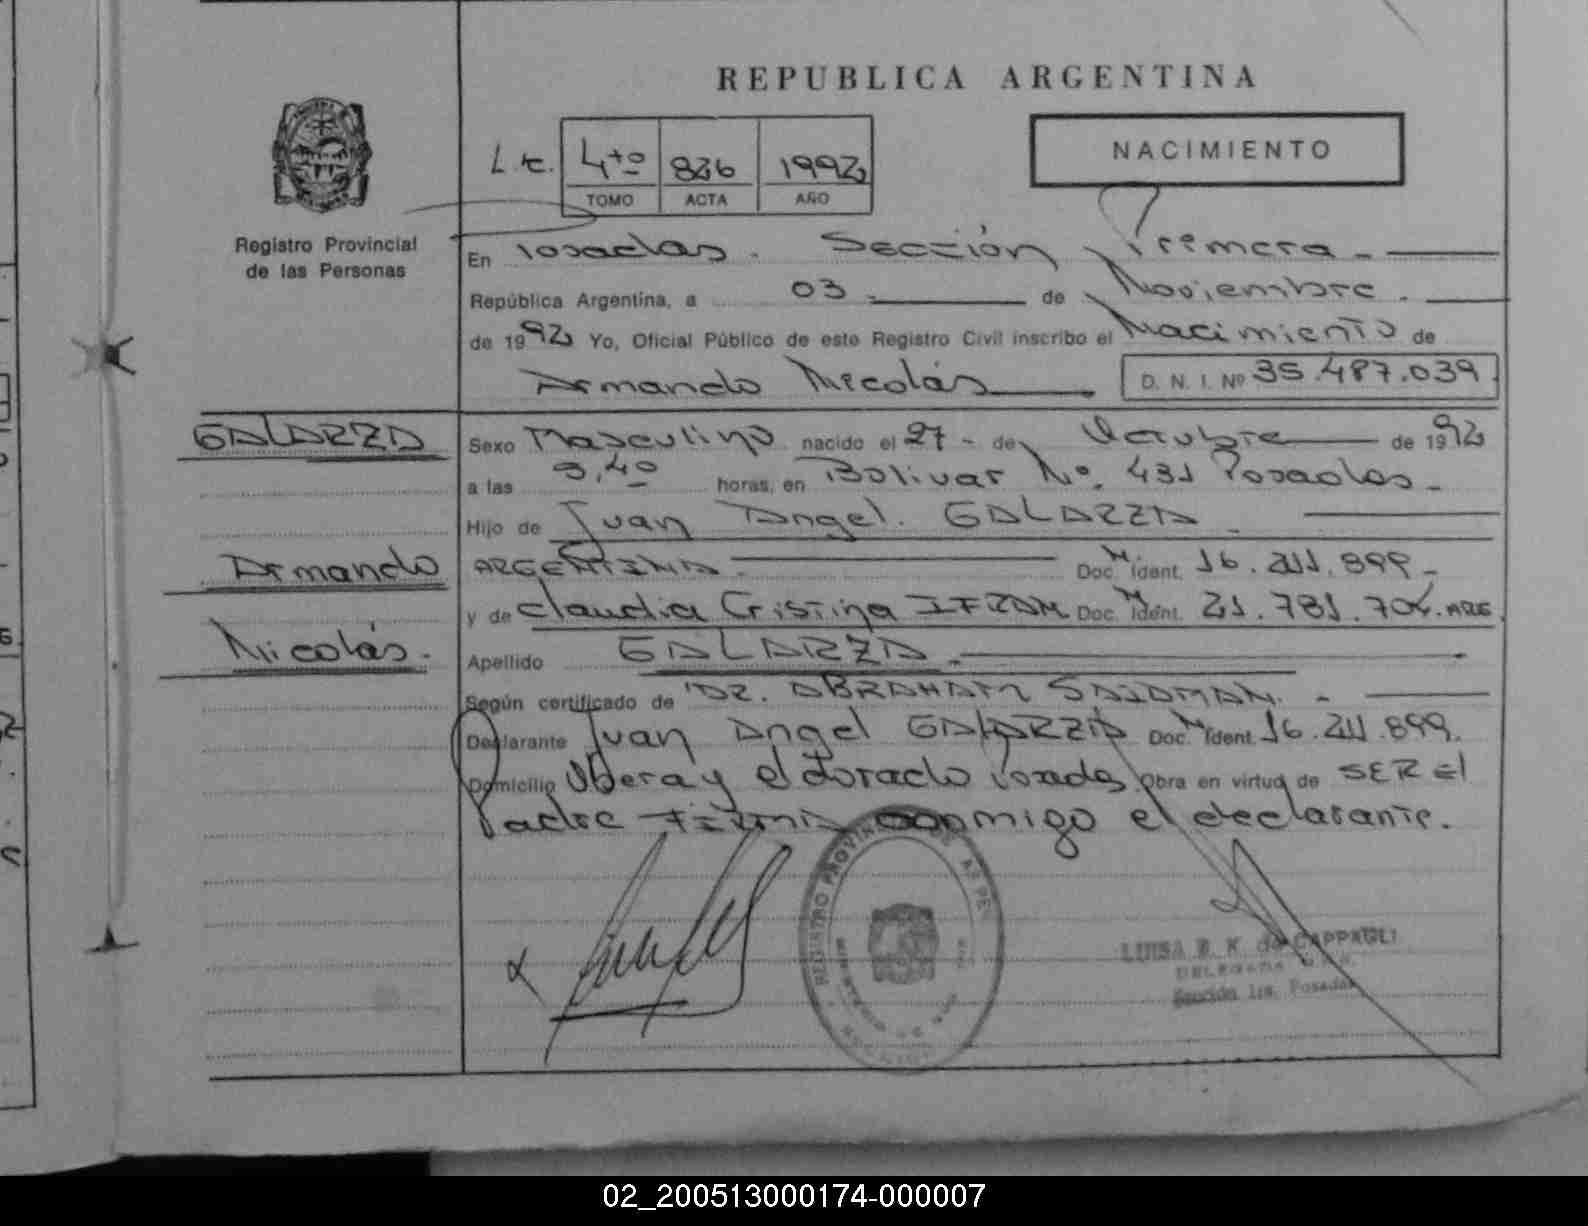 REPUBLICA ARGENTINA
NACIMIENTO
L.c. 4to 836 1992
TOMO ACTA AÑO
Registro Provincial
de las Personas
En Posadas. Sección Primera.
República Argentina, a 03 de Noviembre.
de 1992 Yo, Oficial Público de este Registro Civil inscribo el Nacimiento de
Armando Nicolás D. N. I. Nº 35.487.039
GALARZA
Sexo Masculino nacido el 27 - de Octubre de 1992
a las 9,40 horas, en Bolivar Nº. 431 Posadas -
Hijo de Juan Angel. GALARZA
Armando
ARGENTINA. Doc. M Ident. 16.211.899 -
y de Claudia Cristina IFRAN Doc. M Ident. 21.781.704. ARG
Nicolás.
Apellido GALARZA.
Según certificado de DR. ABRAHAM -
Declarante Juan Angel GALARZA Doc. M Ident. 16.211.899.
Domicilio Obera y eldorado Posadas Obra en virtud de SER El
Padre FIRMA conmigo el declarante.
REGISTRO PROVINCIAL DE LAS PER
LUISA B. K. de CAPPAGLI
DELEGADA
Sección 1ra. Posadas
02_200513000174-000007